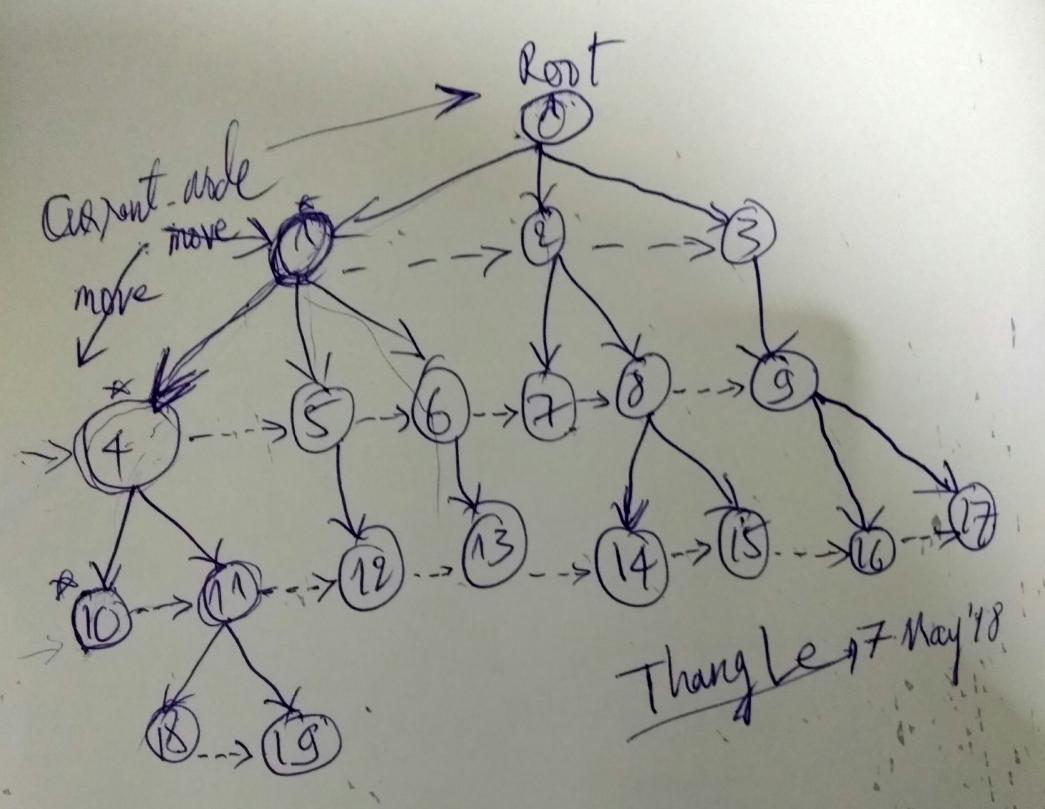 Root
0
Current node
move
1
2
3
move
*
4
5
6
7
8
9
*
10
11
12
13
14
15
16
17
18
19
Thang Le, 7 May'18